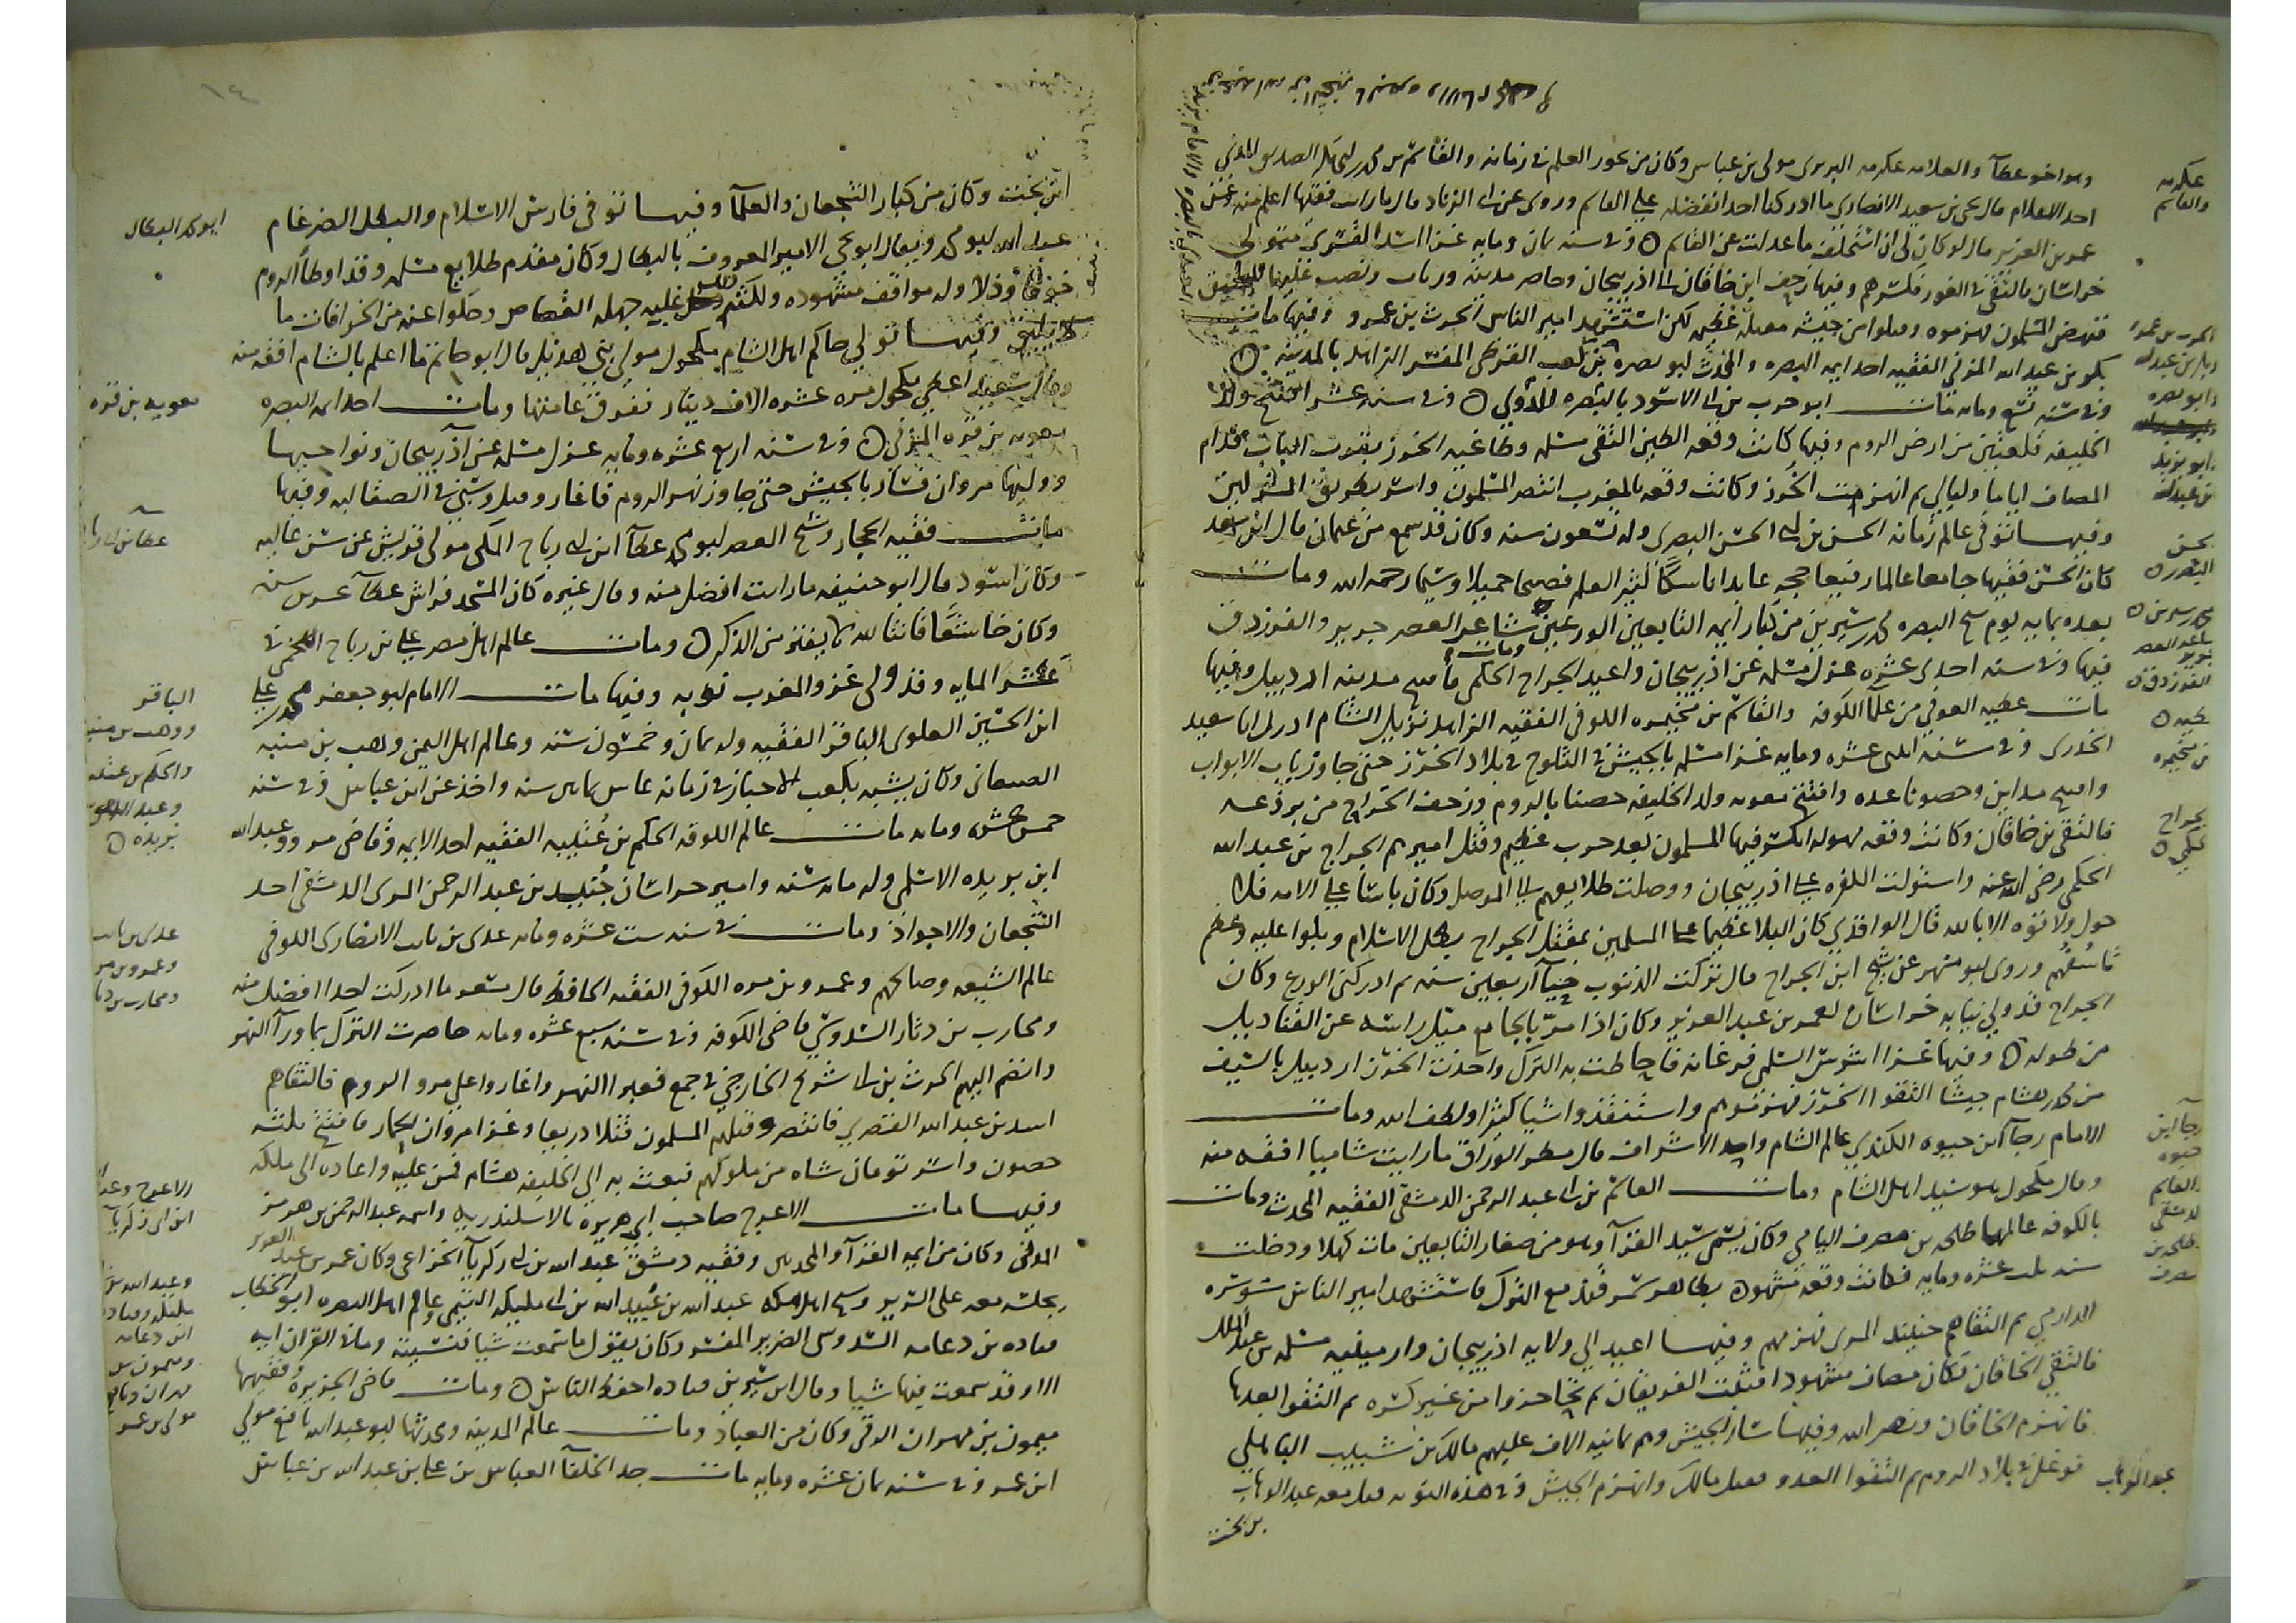 وهو اخو عطآ والعلامه عكرمه البربرى مولى بن عباس وكان من بحور العلم فى زمانه والقاسم بن محمد بن ابى بكر الصديق المدنى
احد الاعلام قال يحيى بن سعيد الانصارى ما ادركنا احدا نفضله على القاسم وروى عن ابى الزناد قال ما رايت فقيها اعلم منه وعن
عمر بن العزيز قال لو كان لى ان استخلف ما عدلت عن القاسم وفى سنه ثمان ومايه غزا اسد القسرى متولى
خراسان فالتقى الغور فكسرهم وفيها زحف ابن خاقان الى اذربيجان وحاصر مدينة ورثان ونصب عليها المنجنيق
فنهض المسلمون لهزموه وقتلوا من جيشه مقتلة عظيمة لكن استشهد امير الناس الحرث بن عمرو وفيها مات
بكر بن عبد الله المزنى الفقيه احد ايمه البصره والمحدث ابو نضره ومحمد بن كعب القرظى المفسر الزاهد بالمدينة
وفى سنه تسع ومايه مات ابو حرب بن ابى الاسود بالبصره الدؤلى وفى سنه عشر افتتح ولد
الخليفه قلعتين من ارض الروم وفيها كانت وقعه الطين التقى مسلمه وطاغيه الخزر بقرب الباب فدام
المصاف اياما وليالى ثم انهزمت الخزر وكانت وقعه بالمغرب انتصر المسلمون واسر بطريق المشركين
وفيها توفى عالم زمانه الحسن بن ابى الحسن البصرى وله تسعون سنه وكان قد سمع من عثمان قال ابن سعد
كان الحسن فقيها جامعا عالما رفيعا حجه عابدا ناسكا كثير العلم فصيحا جميلا وسيما رحمه الله ومات
بعده بمايه يوم شيخ البصره محمد بن سيرين من كبار ايمه التابعين الورعين ومات شاعر العصر جرير والفرزدق
فيها وفى سنه احدى عشره عزل مسلمه عن اذربيجان واعيد الجراح الحكمى فافتتح مدينه اردبيل وفيها
مات عطيه العوفى من علمآ الكوفه والقاسم بن مخيمره الكوفى الفقيه الزاهد نزيل الشام ادرك ابا سعيد
الخدرى وفى سنة اثنى عشره ومايه غزا مسلمه بالجيش فى الثلوج فى بلاد الخزر حتى جاوز باب الابواب
وافتتح مداين وحصونا عده وافتتح معويه ولد الخليفه حصنا بالروم وزحف الجراح من برذعه
فالتقى بن خاقان وكانت وقعه مهوله انكسر فيها المسلمون بعد حرب عظيم وقتل اميرهم الجراح بن عبد الله
الحكمى رضى الله عنه واستولت الكفره على اذربيجان ووصلت طلايعهم الى الموصل وكان باسا على الامه فلا
حول ولا قوه الا بالله قال الواقدى كان البلا عظيما على المسلمين بمقتل الجراح بطل الاسلام وبكوا عليه وعظم
تاسفهم وروى ابو مسهر عن شيخ ابن الجراح قال تركت الذنوب حيآ اربعين سنه ثم ادركنى الورع وكان
الجراح قد ولى نيابه خراسان لعمر بن عبد العزيز وكان اذا مر بالجامع يميل راسه عن القناديل
من طوله وفيها غزا اشرس السلمى فرغانه فاحاطت به الترك واخذت الخزر اردبيل بالسيف
جيشا التقوا الخزر فهزموهم واستنقذوا شيا كثيرا ولطف الله ومات
الامام رجآ ابن حيوه الكندى عالم الشام واحد الاشراف قال مطر الوراق ما رايت شاميا افقه منه
وقال مكحول هو سيد اهل الشام ومات القاسم بن ابى عبد الرحمن الدمشقى الفقيه المحدث ومات
بالكوفه عالمها طلحه بن مصرف اليامى وكان يسمى سيد القرآ وهو من صغار التابعين مات كهلا ودخلت
سنه ثلث عشره ومايه فكانت وقعه مشهوده بظاهر سمرقند مع الترك فاستشهد امير الناس سوره
الدارمى ثم التقاهم جنيد المرى فهزمهم وفيها اعيد الى ولايه اذربيجان وارمينيه مسلمه بن عبد الملك
فالتقى الخاقان فكان مصاف مشهود اقتتلت الفريقان ثم تحاجزوا من غير كسره ثم التقوا بعدها
فانهزم الخاقان ونصر الله وفيها سار الجيش وهم ثمانيه الاف عليهم مالك بن شبيب الباهلى
فوغل فى بلاد الروم ثم التقوا العدو فقتل مالك وانهزم الجيش وفى هذه النوبه قتل معه عبد الوهاب
بن بخت
عكرمه
والقاسم
الحرث بن عمرو
وابو نضره
الحسن
البصرى
محمد بن سيرين
جرير
الفرزدق
بن مخيمره
الجراح
الحكمى
رجآ ابن
حيوه
والقاسم
الدمشقى
طلحه بن
مصرف
عبد الوهاب
١٤
ابن بخت وكان من كبار الشجعان والعلمآ وفيها توفى فارس الاسلام والبطل الضرغام
عبد الله ابو محمد ويقال ابو يحيى الامير المعروف بالبطال وكان مقدم طلايع مسلمه وقد اوطأ الروم
خوفا وذلا وله مواقف مشهوده ولكن كذب عليه جهله القصاص وحكوا عنه من الخرافات ما
لا يليق وفيها توفى حاكم اهل الشام مكحول مولى بنى هذيل قال ابو حاتم ما اعلم بالشام افقه منه
وقال سعيد اعطى مكحول مره عشره الاف دينار ففرق عامتها ومات احد ايمه البصره
معويه بن قره المزنى وفى سنه اربع عشره ومايه عزل مسلمه عن اذربيجان ونواحيها
ووليها مروان فسار بالجيش حتى جاوز نهر الروم فاغار وقتل وسبى فى الصقالبه وفيها
مات فقيه الحجاز وشيخ العصر ابو محمد عطآ ابن ابى رباح المكى مولى قريش عن سن عاليه
وكان اسود قال ابو حنيفه ما رايت افضل منه وقال غيره كان المسجد فراش عطآ عشرين سنه
وكان خاشعا قانتا لله لا يفتر من الذكر ومات عالم اهل مصر على بن رباح اللخمى فى
عشر المايه وقد ولى غزو المغرب نوبه وفيها مات الامام ابو جعفر محمد بن على
ابن الحسين العلوى الباقر الفقيه وله ثمان وخمسون سنه وعالم اهل اليمن وهب بن منبه
الصنعانى وكان يشبه بكعب الاحبار فى زمانه عاش ثمانين سنه واخذ عن ابن عباس وفى سنه
خمس عشره ومايه مات عالم الكوفه الحكم بن عتيبه الفقيه احد الايمه وقاضى مرو وعبد الله
ابن بريده الاسلمى وله مايه سنه وامير خراسان جنيد بن عبد الرحمن المرى الدمشقى احد
الشجعان والاجواد ومات فى سنه ست عشره ومايه عدى بن ثابت الانصارى الكوفى
عالم الشيعه وصالحهم وعمرو بن مره الكوفى الفقيه الحافظ قال مسعر ما ادركت احدا افضل منه
ومحارب بن دثار السدوسى قاضى الكوفه وفى سنه سبع عشره ومايه حاصرت الترك بما ورآ النهر
وانضم اليهم الحرث بن ابى شريح الخارجى فى جمع فعبروا النهر واغاروا على مرو الروذ فالتقاهم
اسد بن عبد الله القسرى فانتصر وقتلهم المسلمون قتلا ذريعا وغزا مروان الحمار فافتتح ثلثه
حصون واسر تومان شاه من ملوكهم فبعث به الى الخليفه هشام فمن عليه واعاده الى ملكه
وفيها مات الاعرج صاحب ابى هريره بالاسكندريه واسمه عبد الرحمن بن هرمز
المدنى وكان من ايمه القرآ والمحدثين وفقيه دمشق عبد الله بن ابى زكريآ الخزاعى وكان عمر بن عبد العزيز
يجلسه معه على السرير وشيخ اهل مكه عبد الله بن عبيد الله بن ابى مليكه التيمى وعالم اهل البصره ابو الخطاب
قتاده بن دعامه السدوسى الضرير المفسر وكان يقول ما سمعت شيا فنسيته وما فى القران ايه
الا وقد سمعت فيها شيا وقال ابن سيرين قتاده احفظ الناس ومات قاضى الجزيره وفقيهها
ميمون بن مهران الرقى وكان من العباد ومات عالم المدينه ومحدثها ابو عبد الله نافع مولى
ابن عمر وفى سنه ثمان عشره ومايه مات جد الخلفآ العباس بن على بن عبد الله بن عباس
ابو محمد البطال
معويه بن قره
عطآ بن ابى رباح
الباقر
ووهب بن منبه
والحكم بن عتيبه
وعبد الله بن
بريده
عدى بن ثابت
وعمرو بن مره
ومحارب بن دثار
الاعرج وعبد
ابن ابى زكريآ
وعبد الله بن
مليكه وقتاده
ابن دعامه
وميمون بن
مهران ونافع
مولى بن عمر